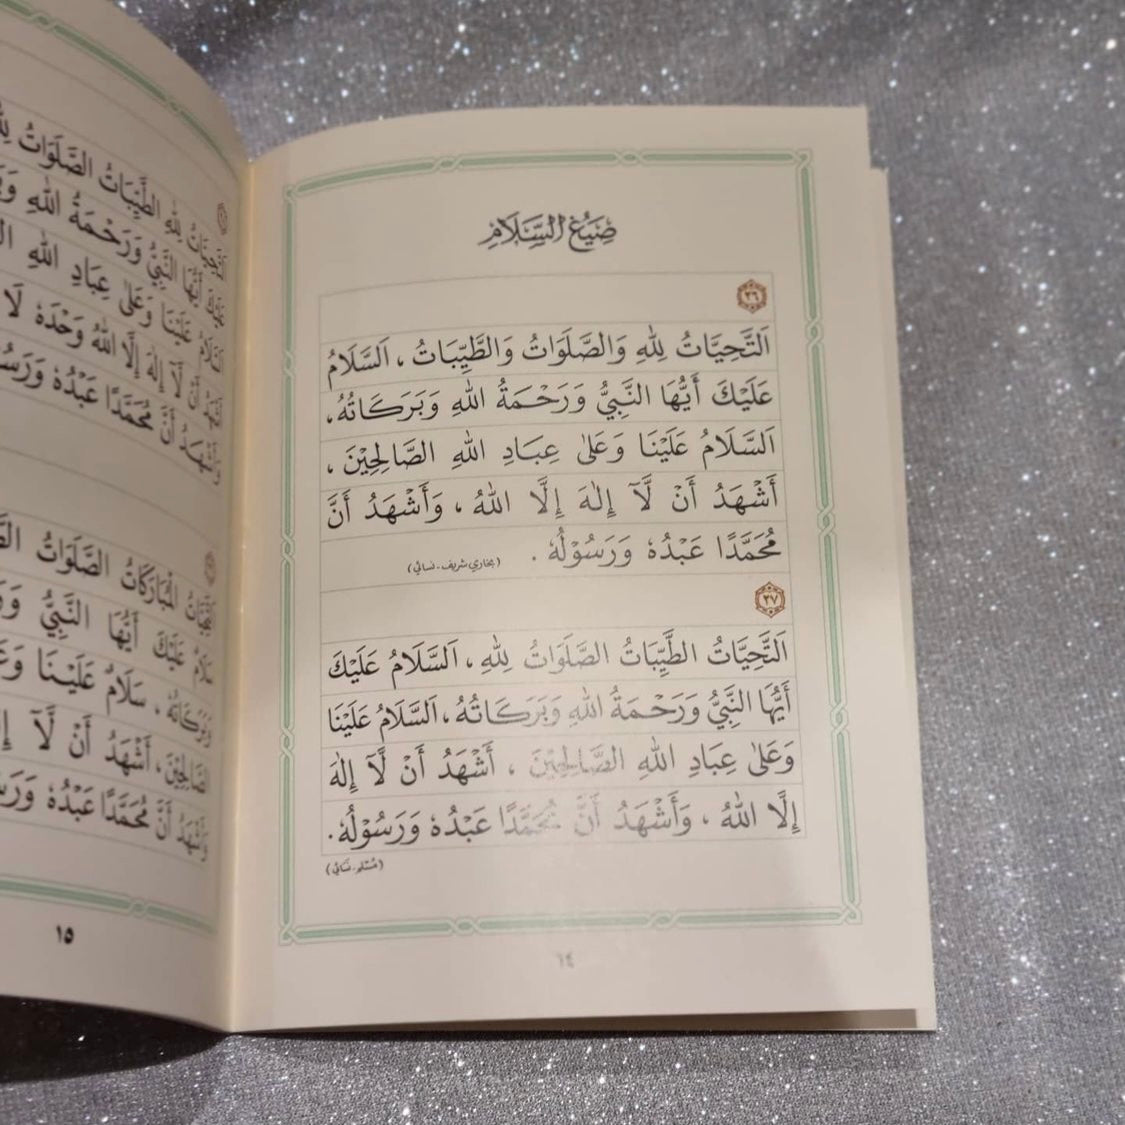 صِيَغُ السَّلَامِ
٢٦
اَلتَّحِيَّاتُ لِلّٰهِ وَالصَّلَوَاتُ وَالطَّيِّبَاتُ ، اَلسَّلَامُ
عَلَيْكَ أَيُّهَا النَّبِيُّ وَرَحْمَةُ اللّٰهِ وَبَرَكَاتُهُ،
اَلسَّلَامُ عَلَيْنَا وَعَلىٰ عِبَادِ اللّٰهِ الصَّالِحِيْنَ ،
أَشْهَدُ أَنْ لَّآ إِلٰهَ إِلَّا اللّٰهُ ، وَأَشْهَدُ أَنَّ
مُحَمَّدًا عَبْدُهٗ وَرَسُوْلُهٗ .
(بخاري شريف - نسائي)
٢٧
اَلتَّحِيَّاتُ الطَّيِّبَاتُ الصَّلَوَاتُ لِلّٰهِ ، اَلسَّلَامُ عَلَيْكَ
أَيُّهَا النَّبِيُّ وَرَحْمَةُ اللّٰهِ وَبَرَكَاتُهُ ، اَلسَّلَامُ عَلَيْنَا
وَعَلىٰ عِبَادِ اللّٰهِ الصَّالِحِيْنَ ، أَشْهَدُ أَنْ لَّآ إِلٰهَ
إِلَّا اللّٰهُ ، وَأَشْهَدُ أَنَّ مُحَمَّدًا عَبْدُهٗ وَرَسُوْلُهٗ .
(مسلم - نسائي)
١٤
التَّحِيَّاتُ لِلّٰهِ الطَّيِّبَاتُ الصَّلَوَاتُ
أَيُّهَا النَّبِيُّ وَرَحْمَةُ اللّٰهِ
اَلسَّلَامُ عَلَيْنَا وَعَلىٰ عِبَادِ اللّٰهِ
أَشْهَدُ أَنْ لَّا إِلٰهَ إِلَّا اللّٰهُ وَحْدَهٗ لَا
وَأَشْهَدُ أَنَّ مُحَمَّدًا عَبْدُهٗ
الْمُبَارَكَاتُ الصَّلَوَاتُ
عَلَيْكَ أَيُّهَا النَّبِيُّ
وَبَرَكَاتُهٗ ، سَلَامٌ عَلَيْنَا
الصَّالِحِيْنَ ، أَشْهَدُ أَنْ لَّآ
وَأَشْهَدُ أَنَّ مُحَمَّدًا عَبْدُهٗ
١٥